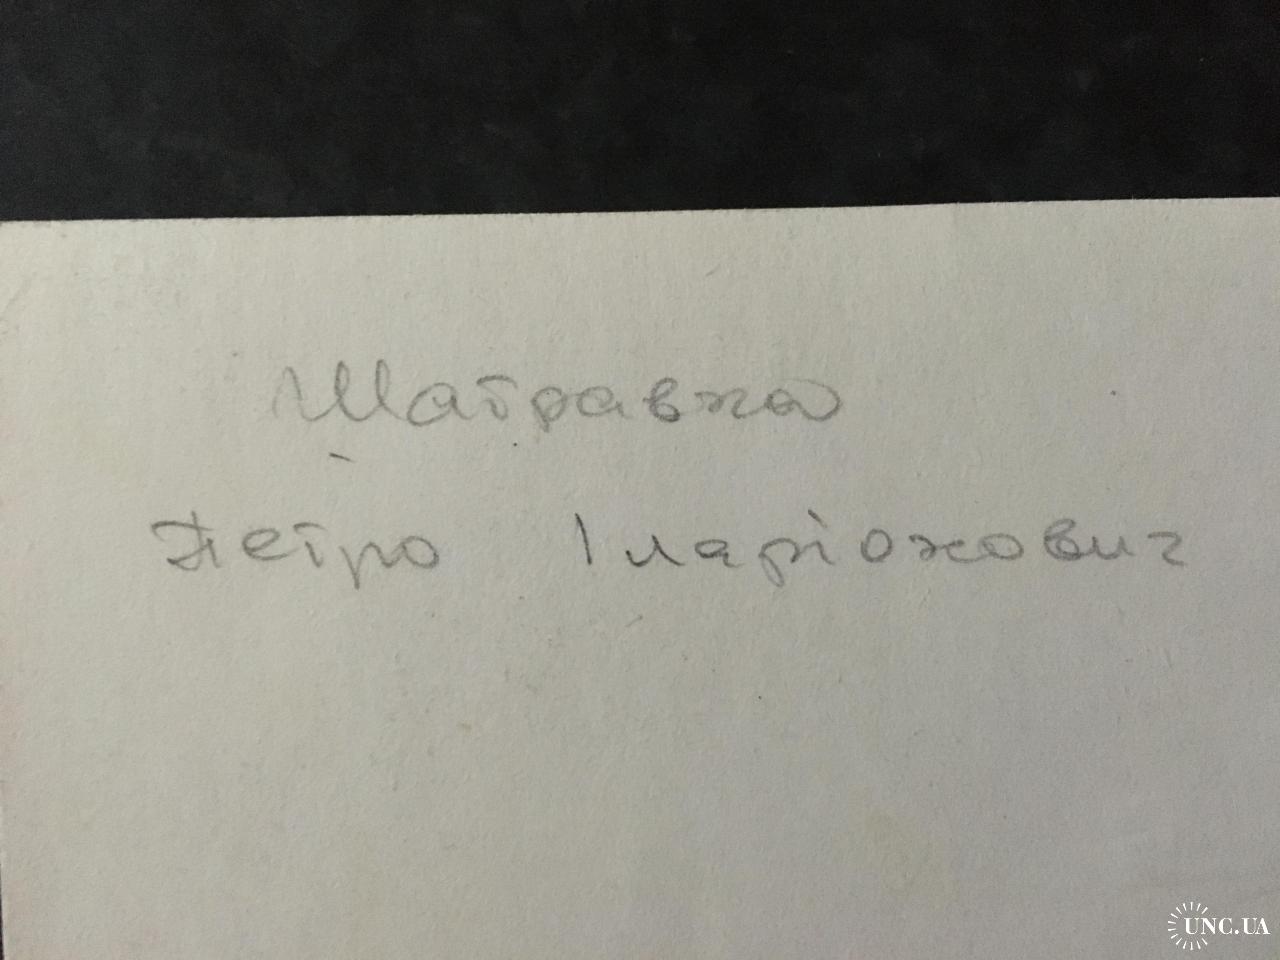 Шатравка
Петро Іларіонович
UNC.UA